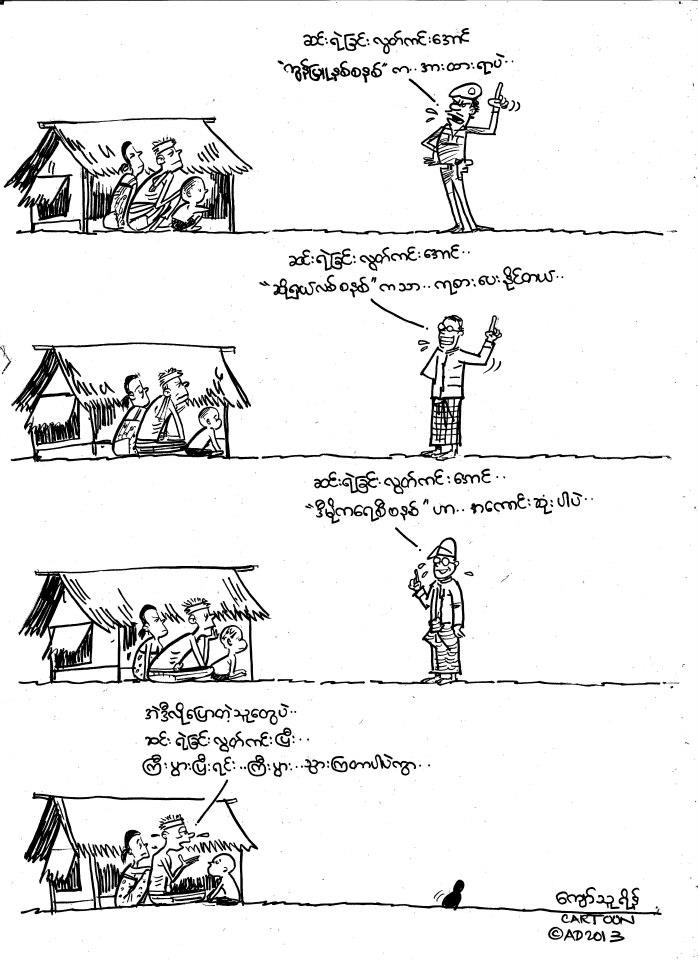 ဆင်းရဲခြင်း လွတ်ကင်းအောင်
"ကွန်မြူနစ်စနစ်" က.. အားထားရာပဲ..
ဆင်းရဲခြင်း လွတ်ကင်းအောင်..
"ဆိုရှယ်လစ်စနစ်" ကသာ.. ကုစားပေးနိုင်တယ်..
ဆင်းရဲခြင်း လွတ်ကင်းအောင်..
"ဒီမိုကရေစီစနစ်" ဟာ.. အကောင်းဆုံးပါပဲ..
အဲဒီလိုပြောတဲ့သူတွေပဲ..
ဆင်းရဲခြင်းလွတ်ကင်းပြီး..
ကြီးပွားပြီးရင်း..ကြီးပွား...သွားကြတာပါပဲကွာ..
ကျော်သူရိန်
CARTOON
©AD2013